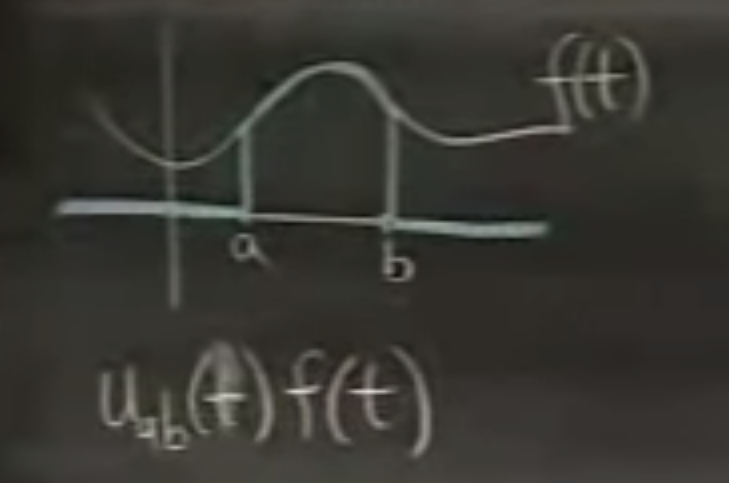 f(t)
a b
u_ab(t) f(t)